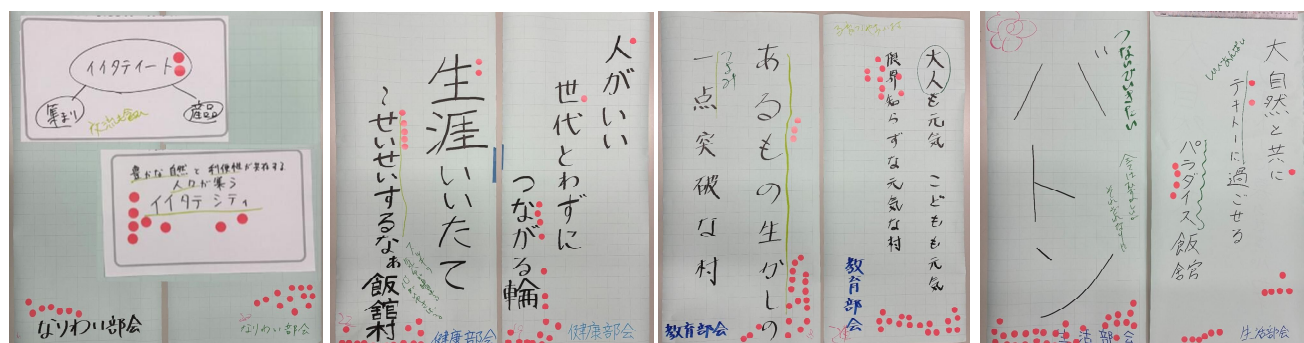 イイタテイート
集まり
産品
豊かな自然と利便性が共存する
人々が集う
イイタテ シティ
なりわい部会
なりわい部会
生涯いいたて
~せいせいするなぁ飯舘村
健康部会
人がいい
世代とわずに
つながる輪
健康部会
あるもの生かしの
一点突破な村
教育部会
大人も元気 こどもも元気
限界知らずな元気な村
教育部会
つないでいきたい
ハートミシ
生活部会
大自然と共に
テキトーに過ごせる
パラダイス飯舘
生活部会